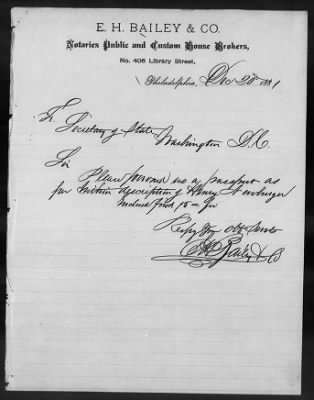 E. H. BAILEY & CO.
Notaries Public and Custom House Brokers,
No. 406 Library Street,
Philadelphia, Dec 20 1881
To
Secretary of State
Washington D.C.
Sir
Please forward us a passport as
per within description of Henry
Inclosed find
Respy Yrs Obt Servts
E H Bailey & Co